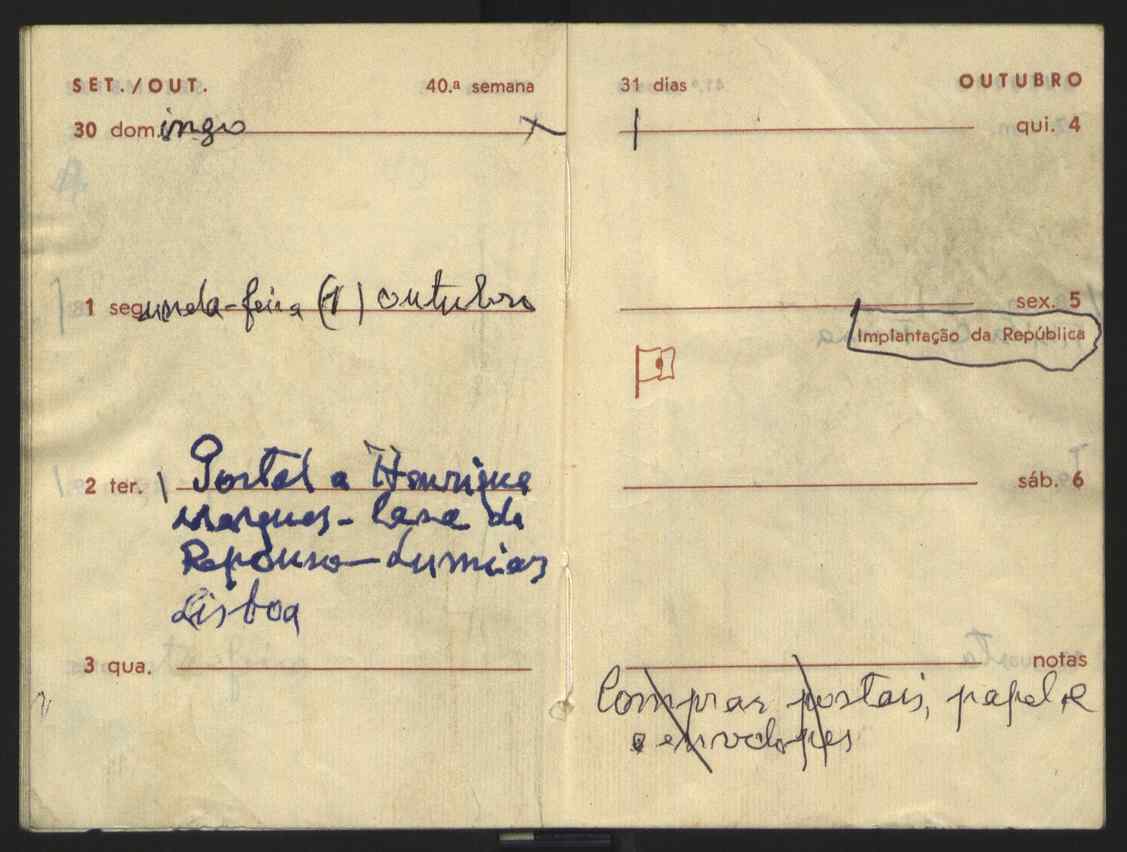 SET./OUT. 40.ª semana
30 domingo
1 segunda-feira (1) outubro
2 ter. Postal a Henrique
Marques - Casa de
Repouso - Lumiar
Lisboa
3 qua.
31 dias OUTUBRO
qui. 4
sex. 5
Implantação da República
sáb. 6
notas
Comprar postais, papel e
e envelopes